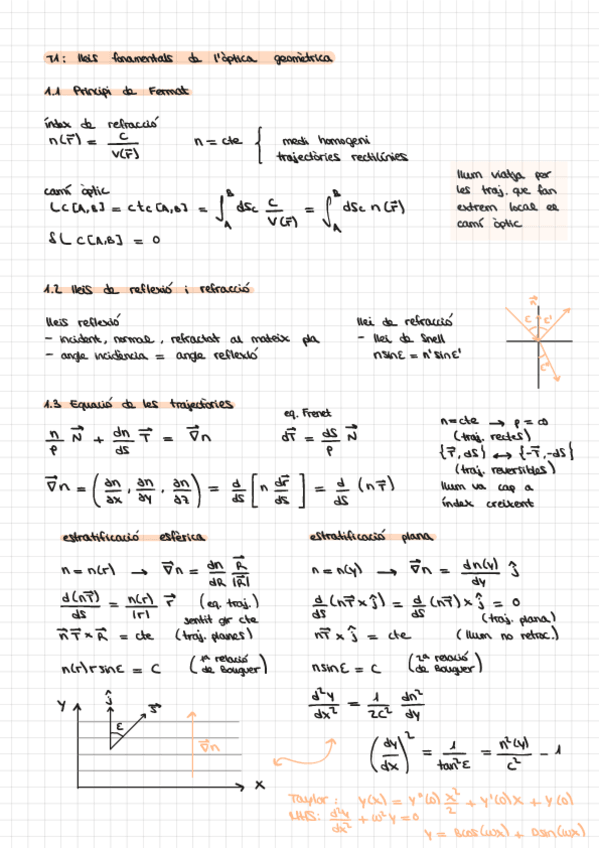 T1: lleis fonamentals de l'òptica geomètrica
1.1 Principi de Fermat
índex de refracció
n(r⃗) = c / v(r⃗)
n = cte { medi homogeni
trajectòries rectilínies
llum viatja per
les traj. que fan
extrem local el
camí òptic
camí òptic
L_C[A,B] = ct_C[A,B] = ∫_A^B ds_C c / v(r⃗) = ∫_A^B ds_C n(r⃗)
δL_C[A,B] = 0
1.2 lleis de reflexió i refracció
lleis reflexió
- incident, normal, refractat al mateix pla
- angle incidència = angle reflexió
llei de refracció
- llei de Snell
n sinε = n' sinε'
n⃗
ε ε'
ε''
1.3 Equació de les trajectòries
n/ρ N⃗ + dn/ds T⃗ = ∇⃗n
eq. Frenet
dT⃗ = ds/ρ N⃗
n=cte → ρ = ∞
(traj. rectes)
{T⃗, ds} ↔ {-T⃗, -ds}
(traj. reversibles)
llum va cap a
índex creixent
∇⃗n = (∂n/∂x, ∂n/∂y, ∂n/∂z) = d/ds [n dr⃗/ds] = d/ds (nT⃗)
estratificació esfèrica
n = n(r) → ∇⃗n = dn/dR R⃗/|R⃗|
d(nT⃗)/ds = n(r)/|r| r⃗ (eq. traj.)
sentit gir cte
n⃗T⃗ × R⃗ = cte (traj. planes)
n(r) r sinε = C (1ª relació
de Bouguer)
estratificació plana
n = n(y) → ∇⃗n = dn(y)/dy ĵ
d/ds (nT⃗ × ĵ) = d/ds (nT⃗) × ĵ = 0
(traj. plana)
nT⃗ × ĵ = cte (llum no retroc.)
n sinε = C (2ª relació
de Bouguer)
d²y/dx² = 1/2C² dn²/dy
(dy/dx)² = 1/tan²ε = n²(y)/C² - 1
Y
ĵ
s⃗
ε
∇⃗n
X
Taylor: y(x) = y''(0) x²/2 + y'(0)x + y(0)
MHS: d²y/dx² + ω²y = 0
y = Bcos(ωx) + Dsin(ωx)